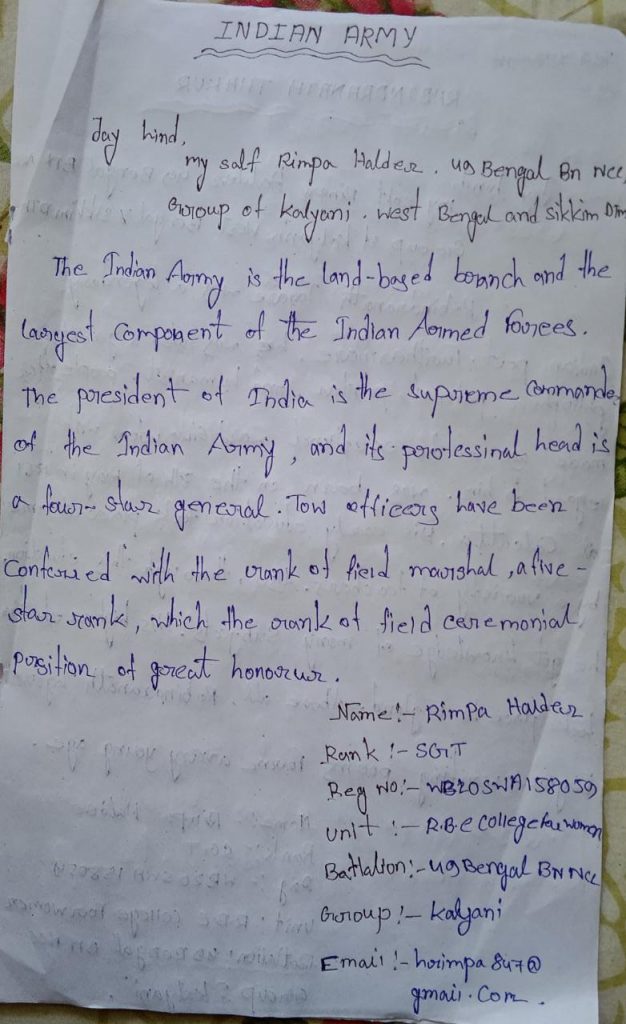 INDIAN ARMY
Jay hind,
my salf Rimpa Halder. 49 Bengal Bn NCC,
Group of Kalyani. West Bengal and sikkim Dir
The Indian Army is the land-based branch and the
largest component of the Indian Armed Forces.
The president of India is the supreme Commande
of the Indian Army, and its professinal head is
a four-star general. Tow officers have been
Conferied with the rank of field marshal, a five-
star rank, which the rank of field ceremonial
position of great honourur.
Name:- Rimpa Halder
Rank:- SGT
Reg No:- WB20SWA158059
Unit:- R.B.C College for women
Battlation:- 49 Bengal BN NCC
Group:- Kalyani
Email:- horimpa847@
gmail.com.